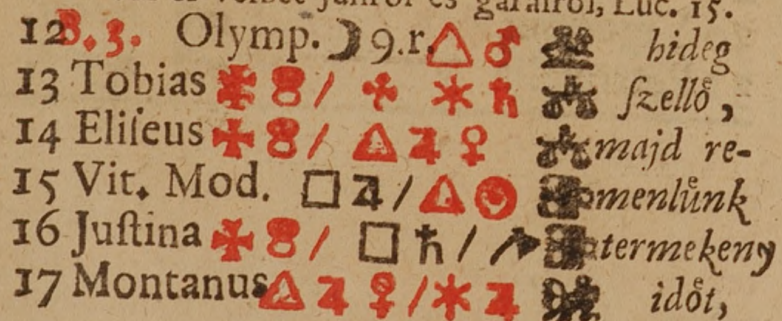 Luc. 15.
12 8. 3. Olymp. ☽ 9. r. △ ♂ hideg
13 Tobias ✠ 8 / ✠ ✶ ♄ ſzellő,
14 Eliſeus ✠ 8 / △ ♃ ♀ majd re-
15 Vit. Mod. □ ♃ / △ ☉ menlünk
16 Juſtina ✠ 8 / □ ♄ / termekeny
17 Montanus △ ♃ ♀ / ✶ ♃ időt,